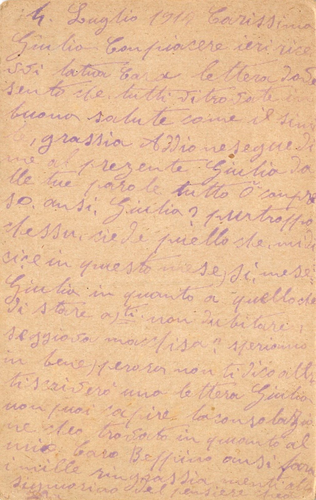 4. Luglio 1914 Carissima
Giulia Con piacere ieri rice
vei la tua Cara lettera dove
sento che tutti vi trovate in
buona salute come il simi
le, grassia Addio ne segue di
me al prezente Giulia da
lle tue parole tutto ò compre
so, ansi Giulia? purtroppo
che succiede quello che mi di
ci è in questo mese, si, mese
Giulia in quanto a quello che
di stare a ti non dubitari;
speriamo
in bene, per ora non ti dico altro
ti scriverò una lettera Giulia
non puoi capire la consolazio
ne che ò trovato in quanto al
mio Caro Beppino ansi farai
i mille ringrassia menti al